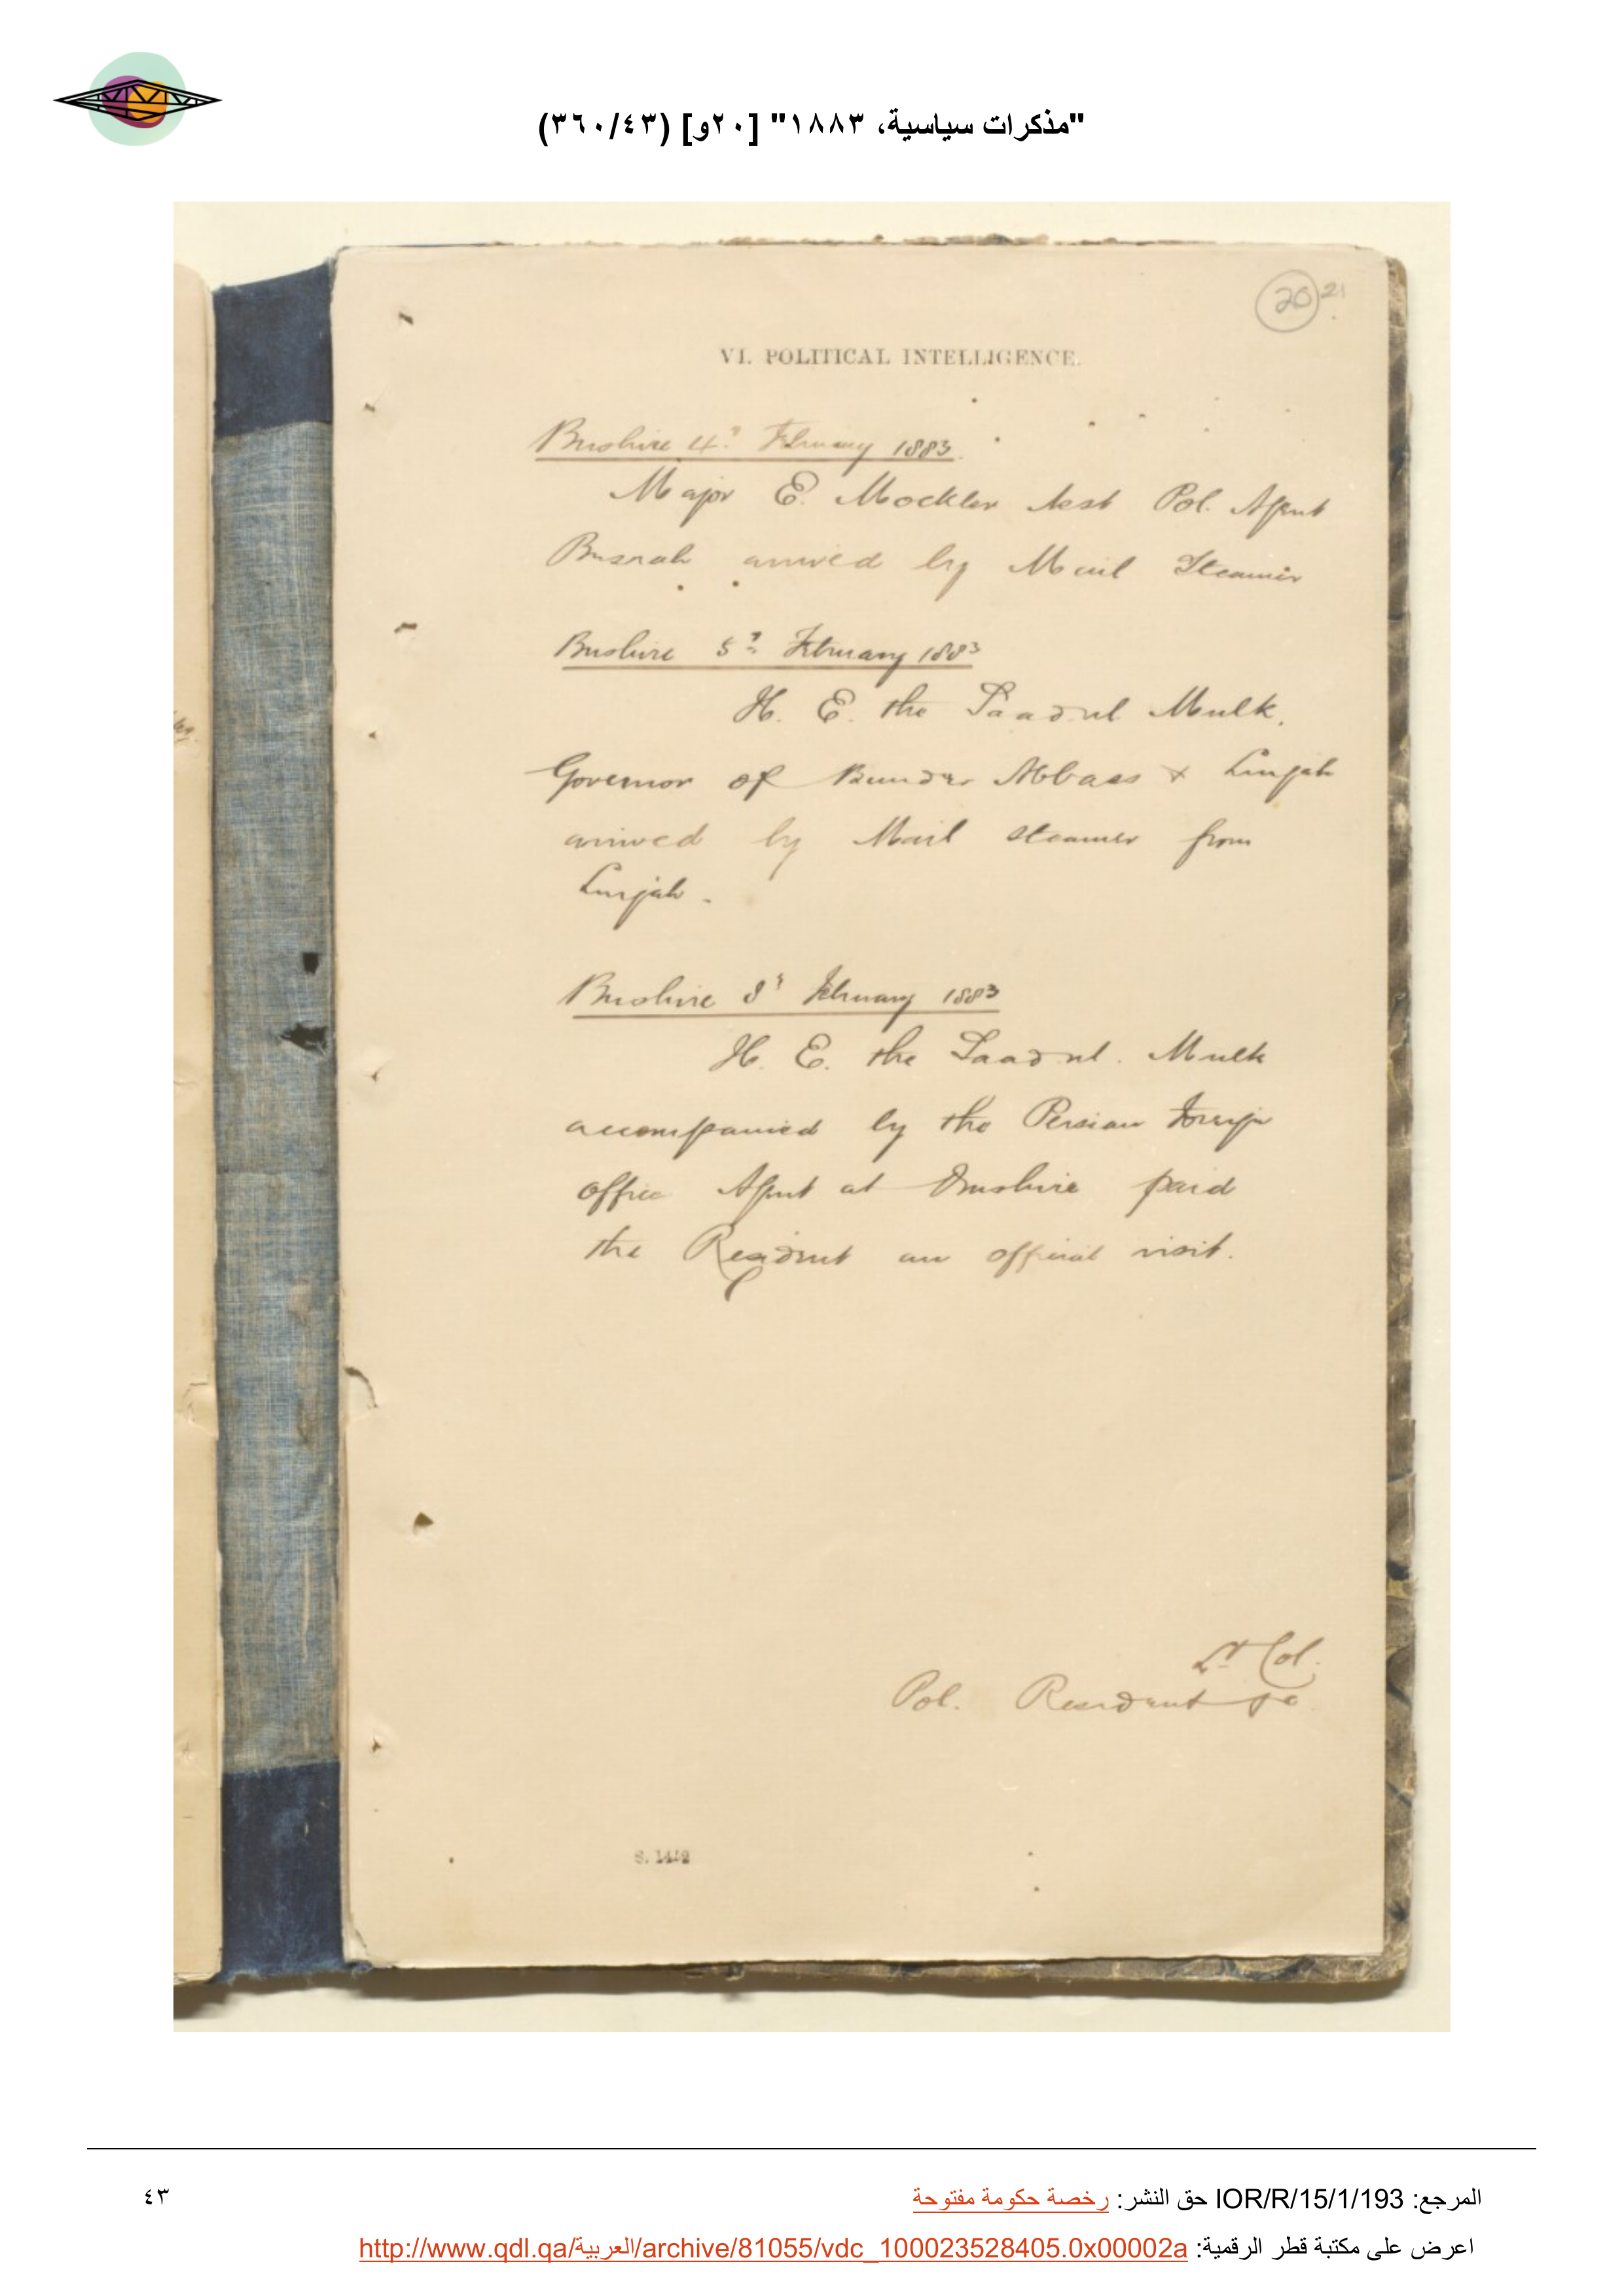 "مذكرات سياسية، ١٨٨٣" [٢٠و] (٣٦٠/٤٣)
20 21
VI. POLITICAL INTELLIGENCE.
Bushire 4th February 1883.
Major E. Mockler Asst Pol. Agent
Busrah arrived by Mail Steamer
Bushire 5th February 1883
H. E. the Saadul Mulk.
Governor of Bunder Abbass & Lingah
arrived by Mail steamer from
Lingah.
Bushire 8th February 1883
H. E. the Saadul. Mulk
accompanied by the Persian Foreign
office Agent at Bushire paid
the Resident an official visit.
Lt Col.
Pol. Resident
المرجع: IOR/R/15/1/193 حق النشر: رخصة حكومة مفتوحة
٤٣
اعرض على مكتبة قطر الرقمية: http://www.qdl.qa/العربية/archive/81055/vdc_100023528405.0x00002a